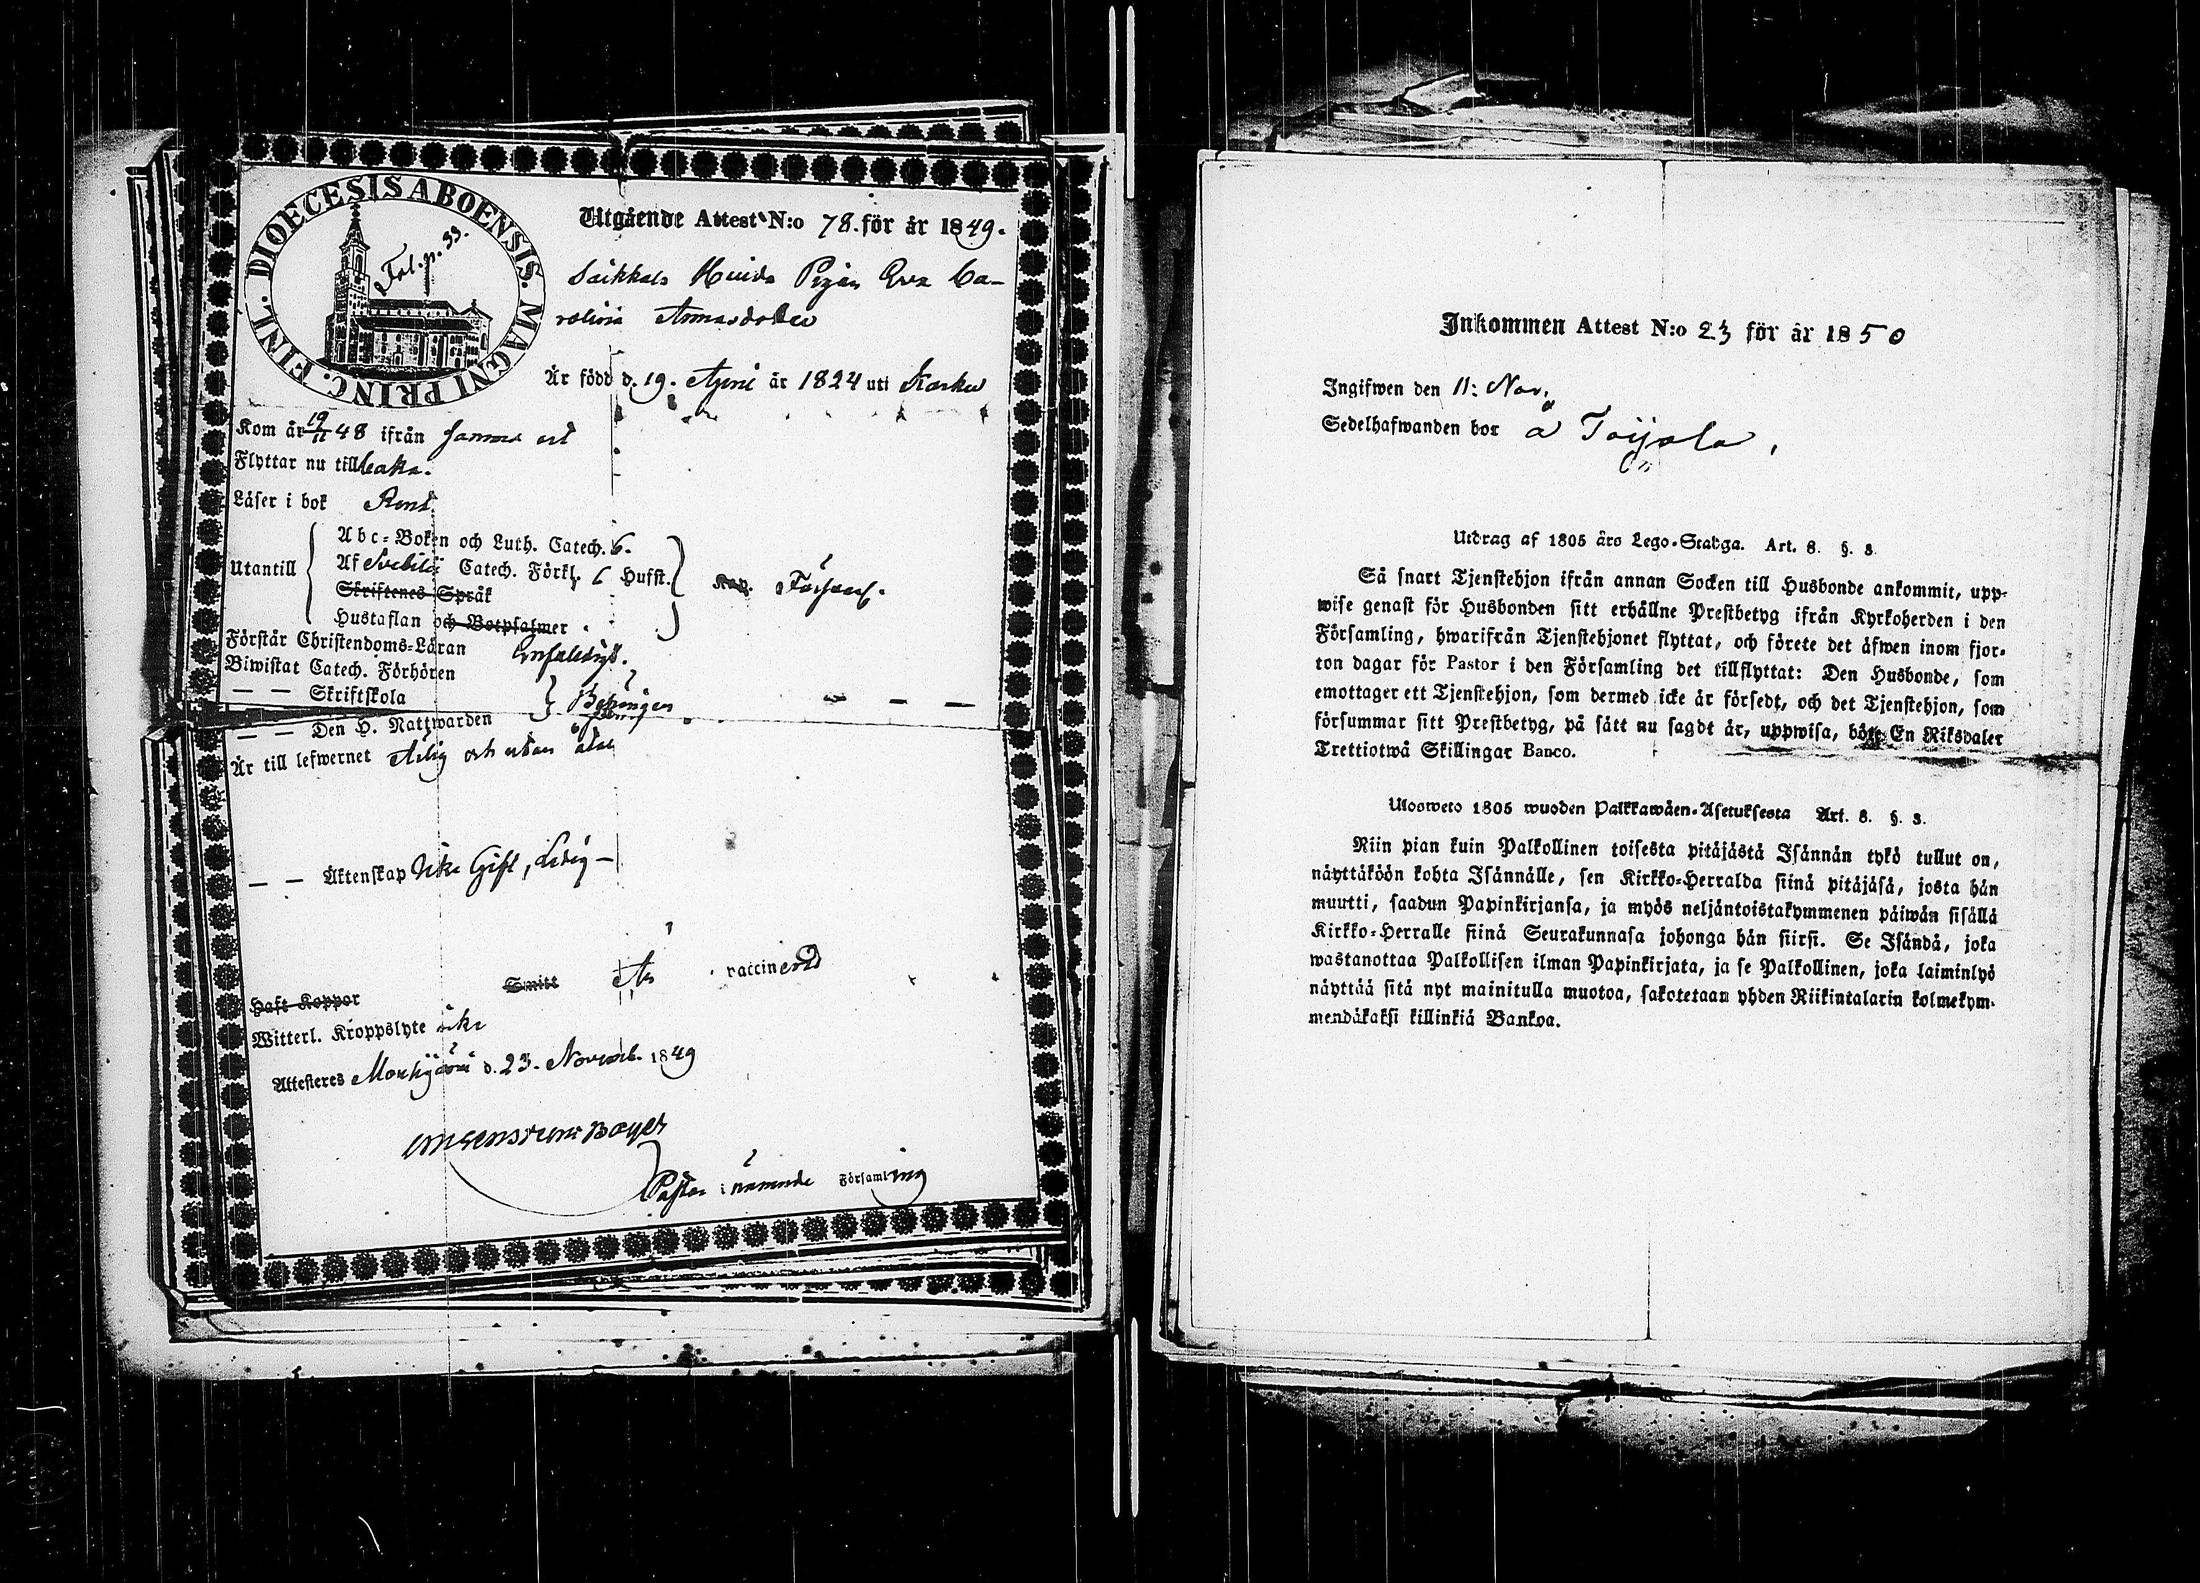 DIOECESIS ABOENSIS. MAGNI PRINC. FINL.
Fol. p. 33.
Utgående Attest N:o 78. för år 1849.
Saikkala Huida Pigan Eva Ca-
rolina Thomasdotter
Är född d. 19. April år 1824 uti Karku
Kom år 19/11 48 ifrån samma ort
Flyttar nu tillbaka.
Läser i bok Rent
Utantill
Abc-Boken och Luth. Catech. 6.
Af Svebilii Catech. Förkl. 6 Hufst.
Skriftenes Språk
Hustaflan och Botpsalmer
Förstår Christendoms-Läran Enfaldigt.
Biwistat Catech. Förhören
— — Skriftskola Behörigen
— — Den H. Nattwarden
Är till lefwernet Ärlig och utan
— — Äktenskap Icke Gift, Ledig —
Haft Koppor Smitt Är vaccinerad
Witterl. Kroppslyte icke
Attesteres Mouhijärvi d. 23. Novemb. 1849
Pastor i nämnde Församling
Inkommen Attest N:o 23 för år 1850
Ingifwen den 11: Nov.
Sedelhafwanden bor å Toijola
Utdrag af 1805 års Lego-Stadga. Art. 8. §. 3.
Så snart Tjenstehjon ifrån annan Socken till Husbonde ankommit, upp-
wise genast för Husbonden sitt erhållne Prestbetyg ifrån Kyrkoherden i den
Församling, hwarifrån Tjenstehjonet flyttat, och förete det äfwen inom fjor-
ton dagar för Pastor i den Församling det tillflyttat: Den Husbonde, som
emottager ett Tjenstehjon, som dermed icke är försedt, och det Tjenstehjon, som
försummar sitt Prestbetyg, på sätt nu sagdt är, uppwisa, böte En Riksdaler
Trettiotwå Skillingar Banco.
Ulosweto 1805 wuoden Palkkawäen-Asetuksesta Art. 8. §. 3.
Niin pian kuin Palkollinen toisesta pitäjästä Isännän tykö tullut on,
näyttäköön kohta Isännälle, sen Kirkko-Herralda siinä pitäjäsä, josta hän
muutti, saadun Papinkirjansa, ja myös neljäntoistakymmenen päiwän sisällä
Kirkko-Herralle siinä Seurakunnasa johonga hän siirsi. Se Isändä, joka
wastanottaa Palkollisen ilman Papinkirjata, ja se Palkollinen, joka laiminlyö
näyttää sitä nyt mainitulla muotoa, sakotetaan yhden Riikintalarin kolmekym-
mendäkaksi killinkiä Bankoa.